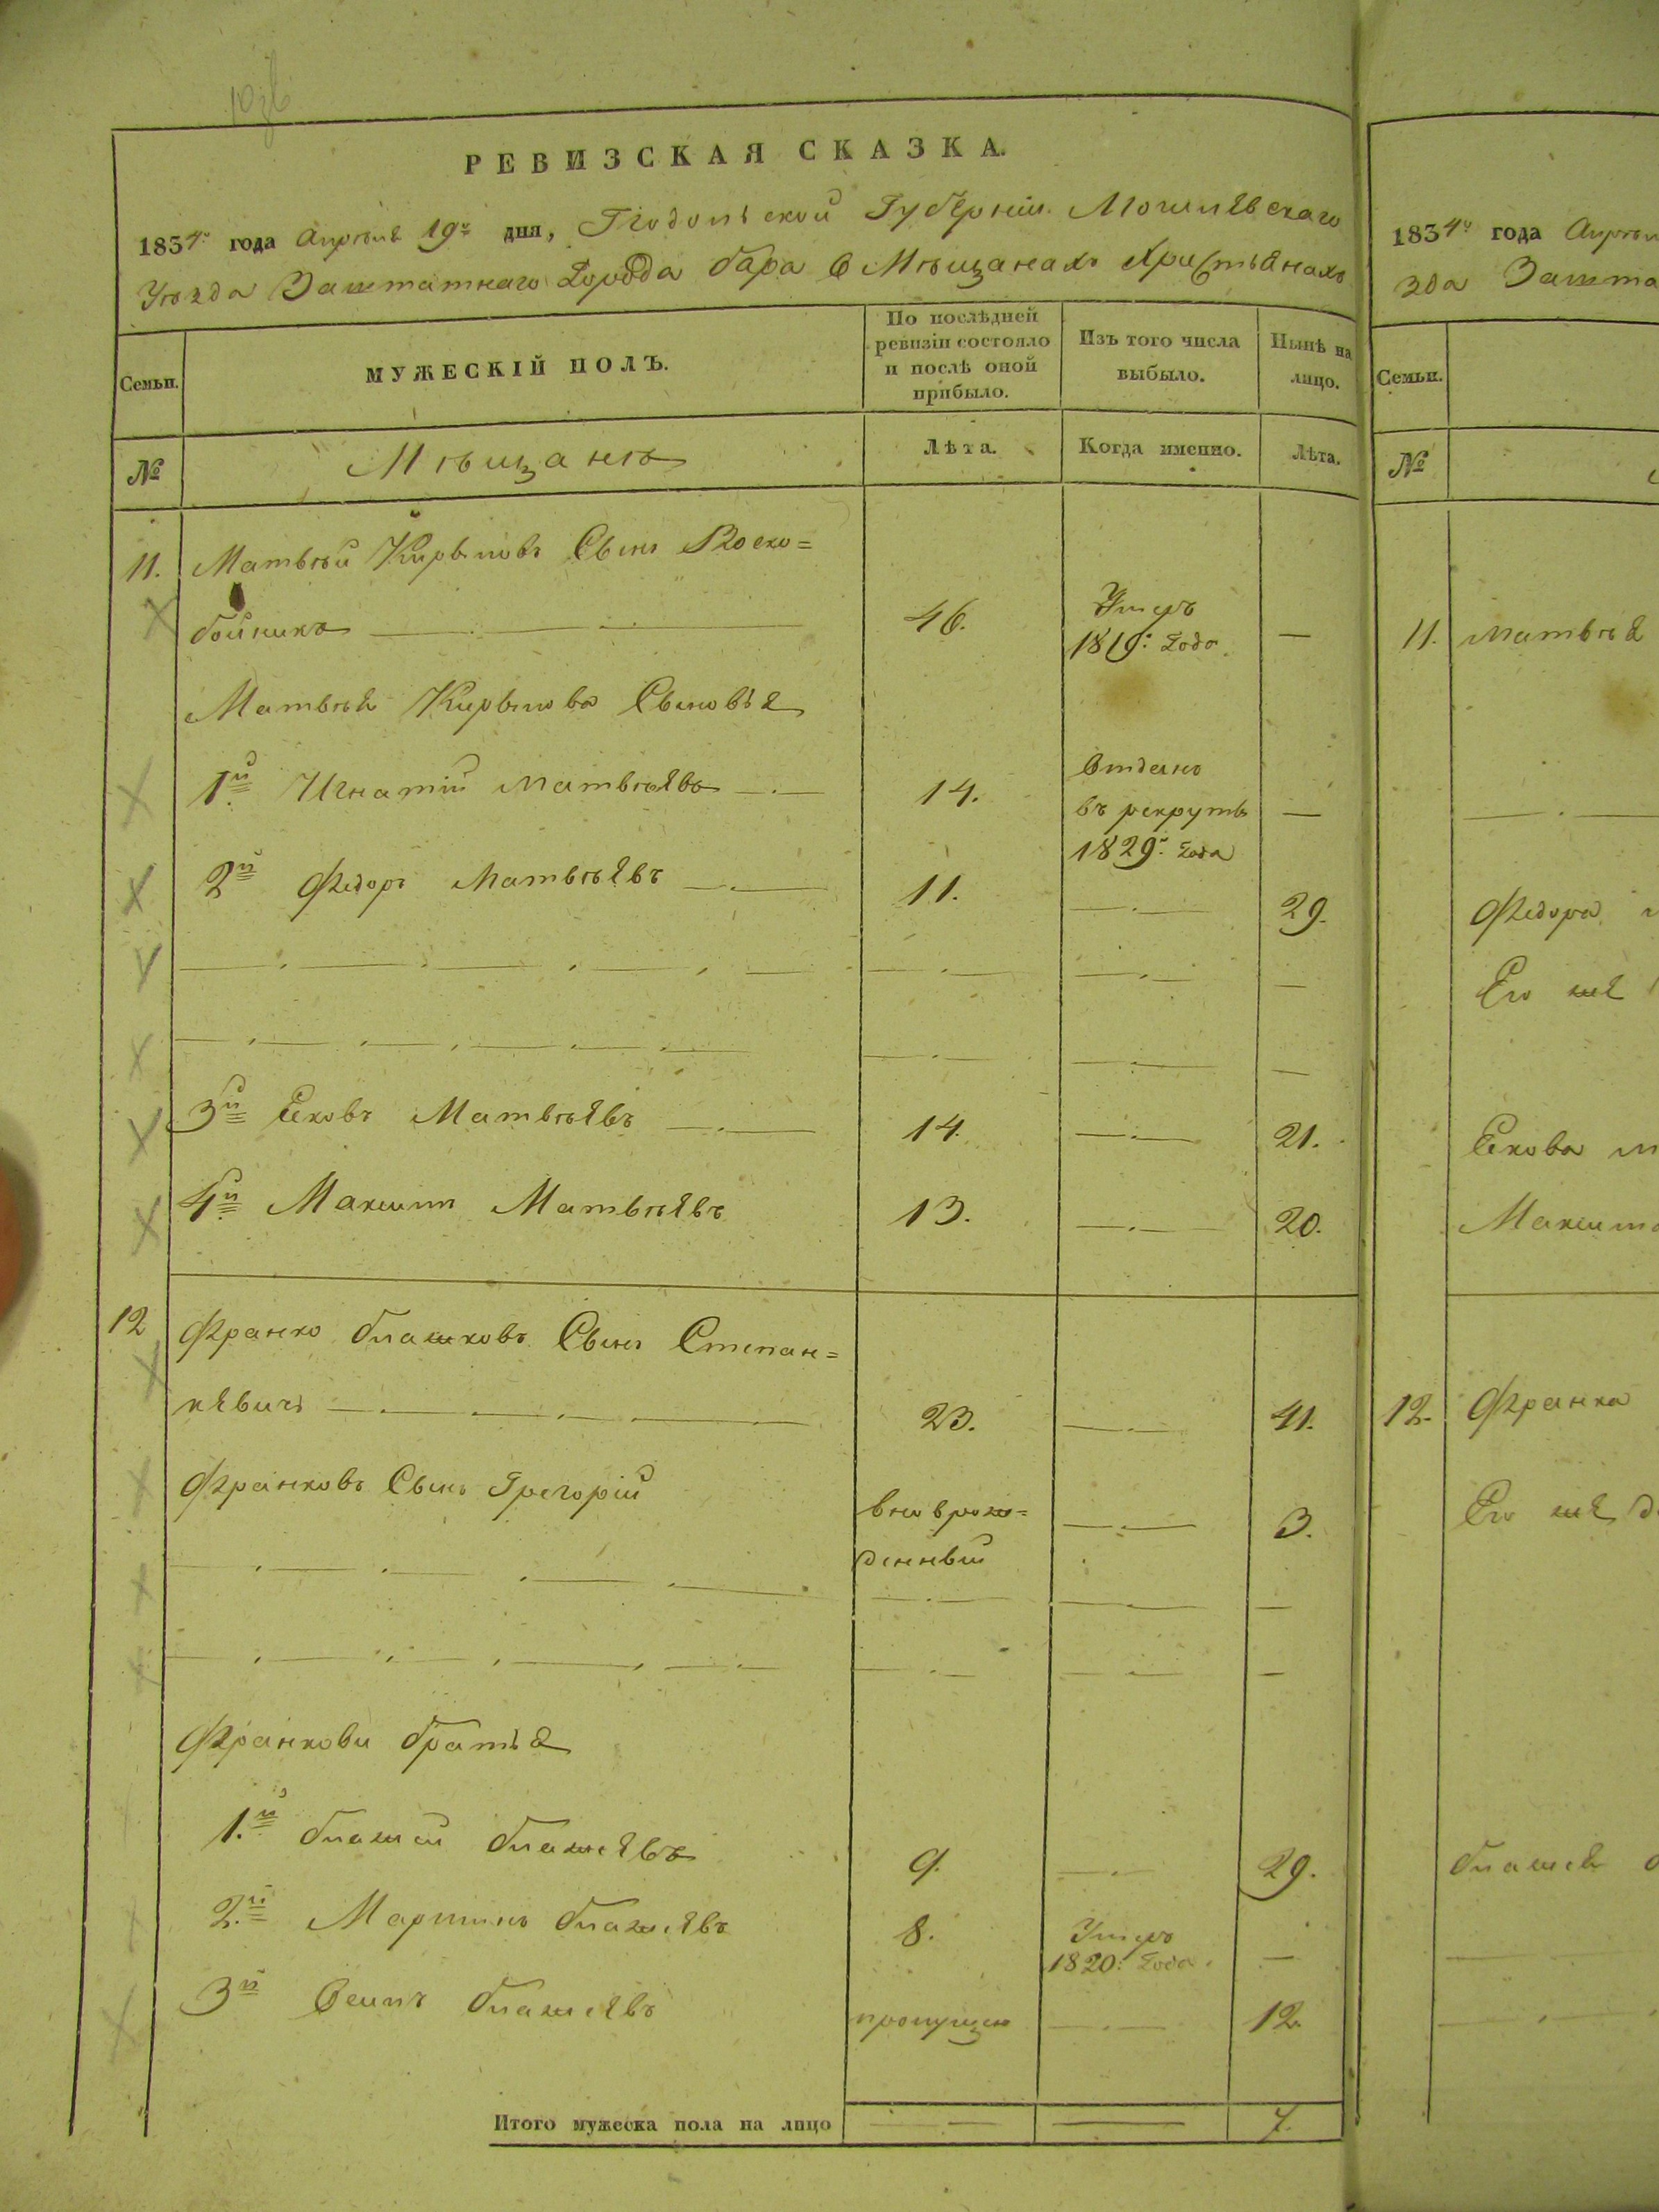 РЕВИЗСКАЯ СКАЗКА.
1834го года Апреля 19го дня, Подольской Губерніи Могилевскаго
Уѣзда Заштатнаго Города Бара о Мѣщанахъ Христьянахъ
Семьи.
МУЖЕСКІЙ ПОЛЪ.
По послѣдней
ревизіи состояло
и послѣ оной
прибыло.
Изъ того числа
выбыло.
Нынѣ на
лицо.
№
Мѣщанѣ
Лѣта.
Когда именно.
Лѣта.
11. Матвѣй Кирыловъ Сынъ Роско=
бойникъ 46. Умеръ
1819: Года —
Матвѣя Кирылова Сыновья
1й Игнатій Матвѣевъ 14. Отданъ
въ рекруты —
1829: года
2й Федоръ Матвѣевъ 11. — 29.
3й Яковъ Матвѣевъ 14. — 21.
4й Максим Матвѣевъ 13. — 20.
12 Франко Блажковъ Сынъ Степан=
кевичъ 23. — 41.
Франковъ Сынъ Григорій
вноврож=
денный — 3.
Франкови братья
1.й Блажей Блажеевъ 9. — 29.
2.й Мартинъ Блажеевъ 8. Умеръ
1820: Года —
3й Осипъ Блажеевъ пропущен — 12.
Итого мужеска пола на лицо — — 7.
1834го года
зда Зашта
Семьи.
№
11. Матвѣя
Федора
Его же
Якова
Максима
12. Франка
Его же
Блажея